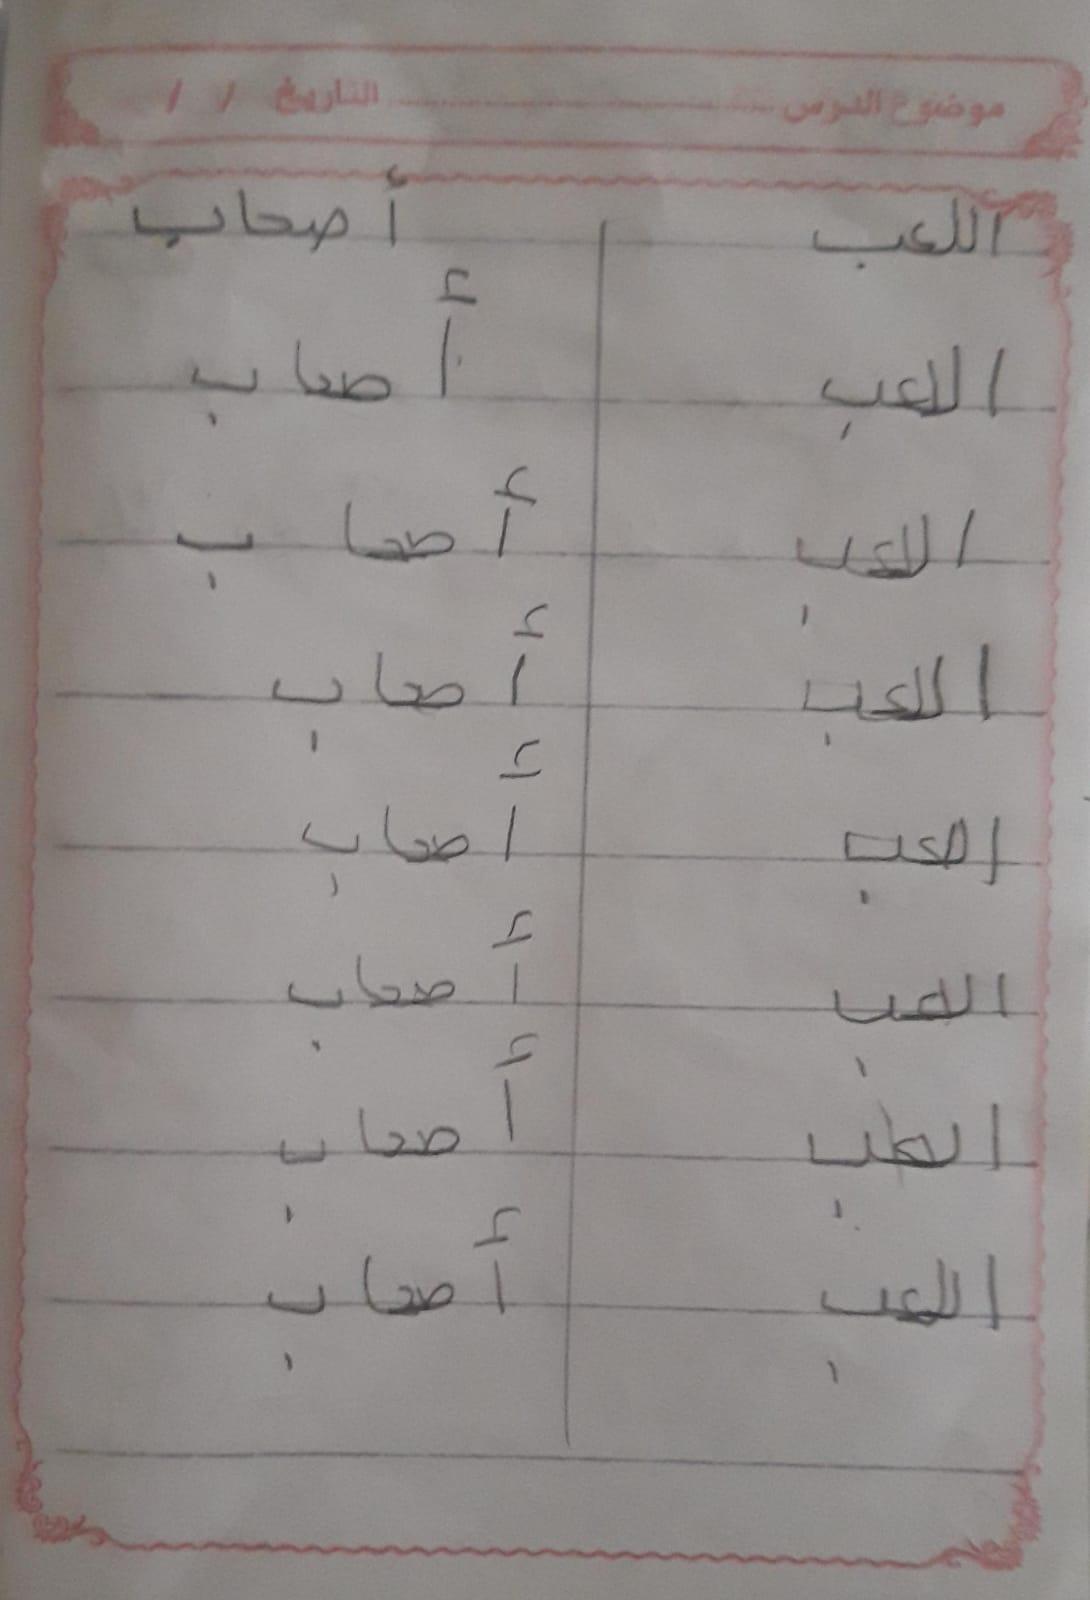 موضوع الدرس ........................ التاريخ / /
اللعب أصحاب
اللعب أصحاب
اللعب أصحاب
اللعب أصحاب
العب أصحاب
العب أصحاب
العب أصحاب
اللعب أصحاب